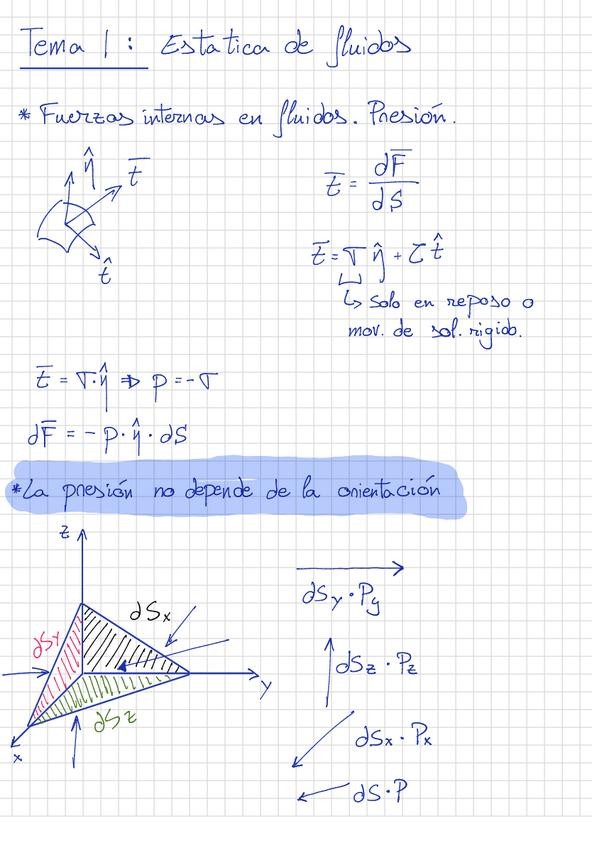 Tema 1: Estatica de fluidos
* Fuerzas internas en fluidos. Presión.
n̂ t̄
t̂
t̄ = dF̄/dS
t̄ = σ n̂ + τ t̂
↳ Solo en reposo o
mov. de sol. rigido.
t̄ = σ·n̂ ⇒ p = -σ
dF̄ = - p · n̂ · dS
*La presión no depende de la orientación
z
dSx
dSy
dSz
y
x
dSy · Py
dSz · Pz
dSx · Px
dS·P